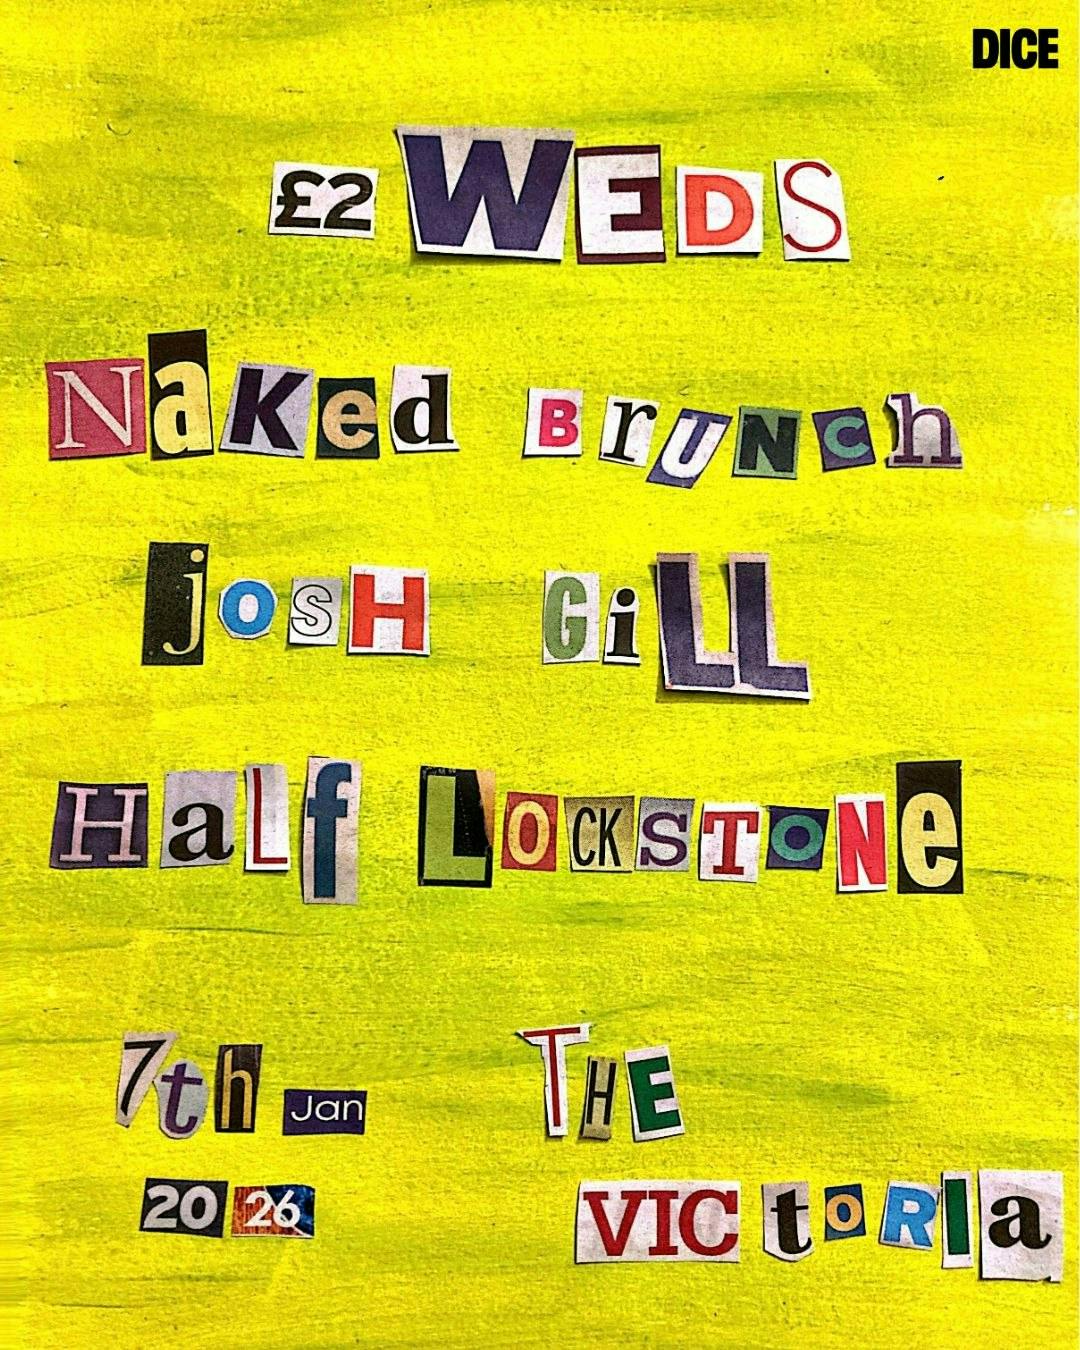 DICE
£2 WEDS
Naked Brunch
josH GiLL
Half LOCKSTONe
7th Jan
THE
2026
VICtoRIa